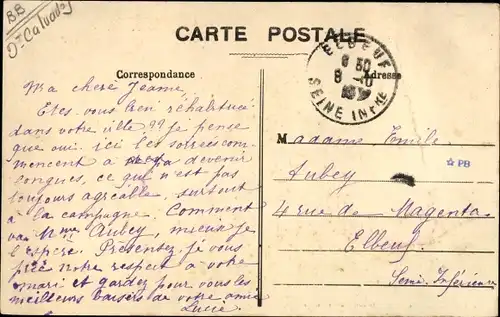 BB
Dt Calvados
CARTE POSTALE
ELBEUF
8 30
8 -10
SEINE INFRE
Correspondance
Adresse
Ma chere Jeanne,
Etes-vous bien réhabitué
dans votre ville ?? je pense
que oui. ici les soirées com-
mencent à devenir
longues, ce qui n'est pas
toujours agréable, surtout
à la campagne. Comment
va Mme Aubey, mieux je
l'espère. Présentez, je vous
prie notre respect à votre
mari et gardez pour vous les
meilleurs baisers de votre amie
Lucie
Madame Emile
Aubey
☆ PB
4 rue de Magenta
Elbeuf
Seine Inférieure